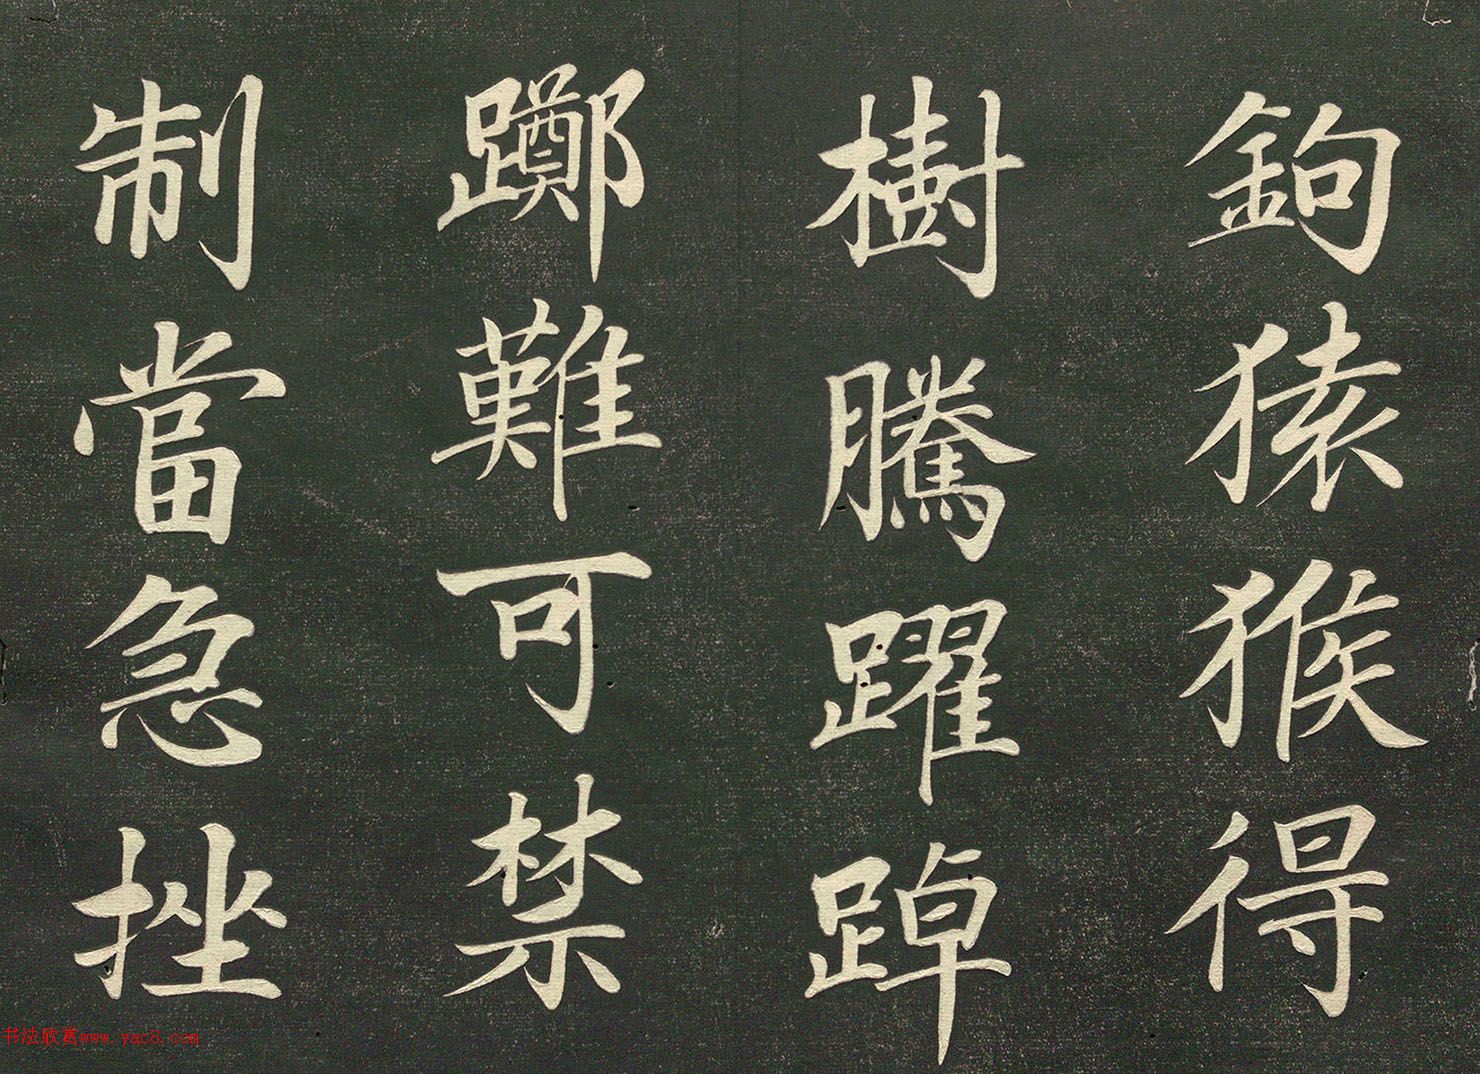 鉤猿猴得
樹騰躍踔
躑難可禁
制當急挫
书法欣赏www.yac8.com